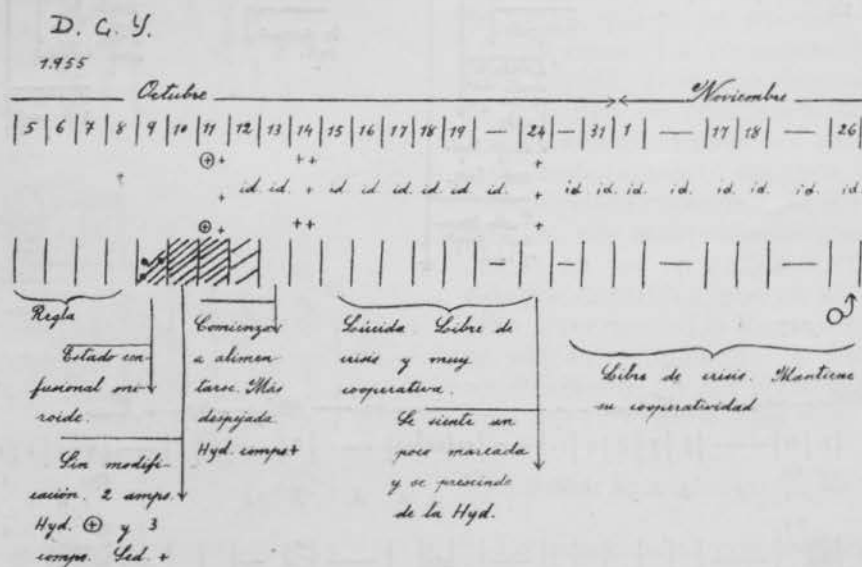 D. C. Y.
1.955
Octubre Noviembre
5 6 7 8 9 10 11 12 13 14 15 16 17 18 19 — 24 — 31 1 — 17 18 — 26
⊕ + + + +
+ id. id. + id. id. id. id. id. id. + id. id. id. id. id. id. id.
⊕ + + + +
Regla
Estado con-
fusional oni-
roide.
Sin modifi-
cación. 2 amps.
Hyd. ⊕ y 3
comps. Sed. +
Comienza
a alimen
tarse. Más
despejada
Hyd. comps +
Lúcida Libre de
crisis y muy
cooperativa.
Se siente un
poco mareada
y se prescinde
de la Hyd.
Libre de crisis. Mantiene
su cooperatividad